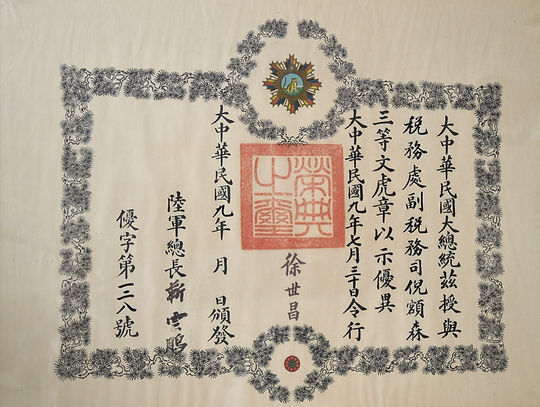 大中華民國大總統茲授與
稅務處副稅務司倪額森
三等文虎章以示優異
大中華民國九年七月三十日令行
榮典之璽
徐世昌
大中華民國九年 月 日頒發
陸軍總長靳雲鵬
優字第一三八號